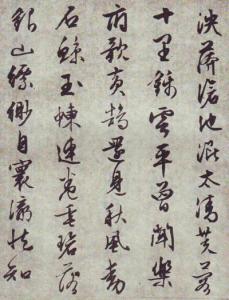 泱漭滄池混太清芙蓉
十里錦雲平曾聞樂
府歌黃鵠還見秋風動
石鯨玉蝀連卷垂碧落
銀山縹緲自寰瀛從知